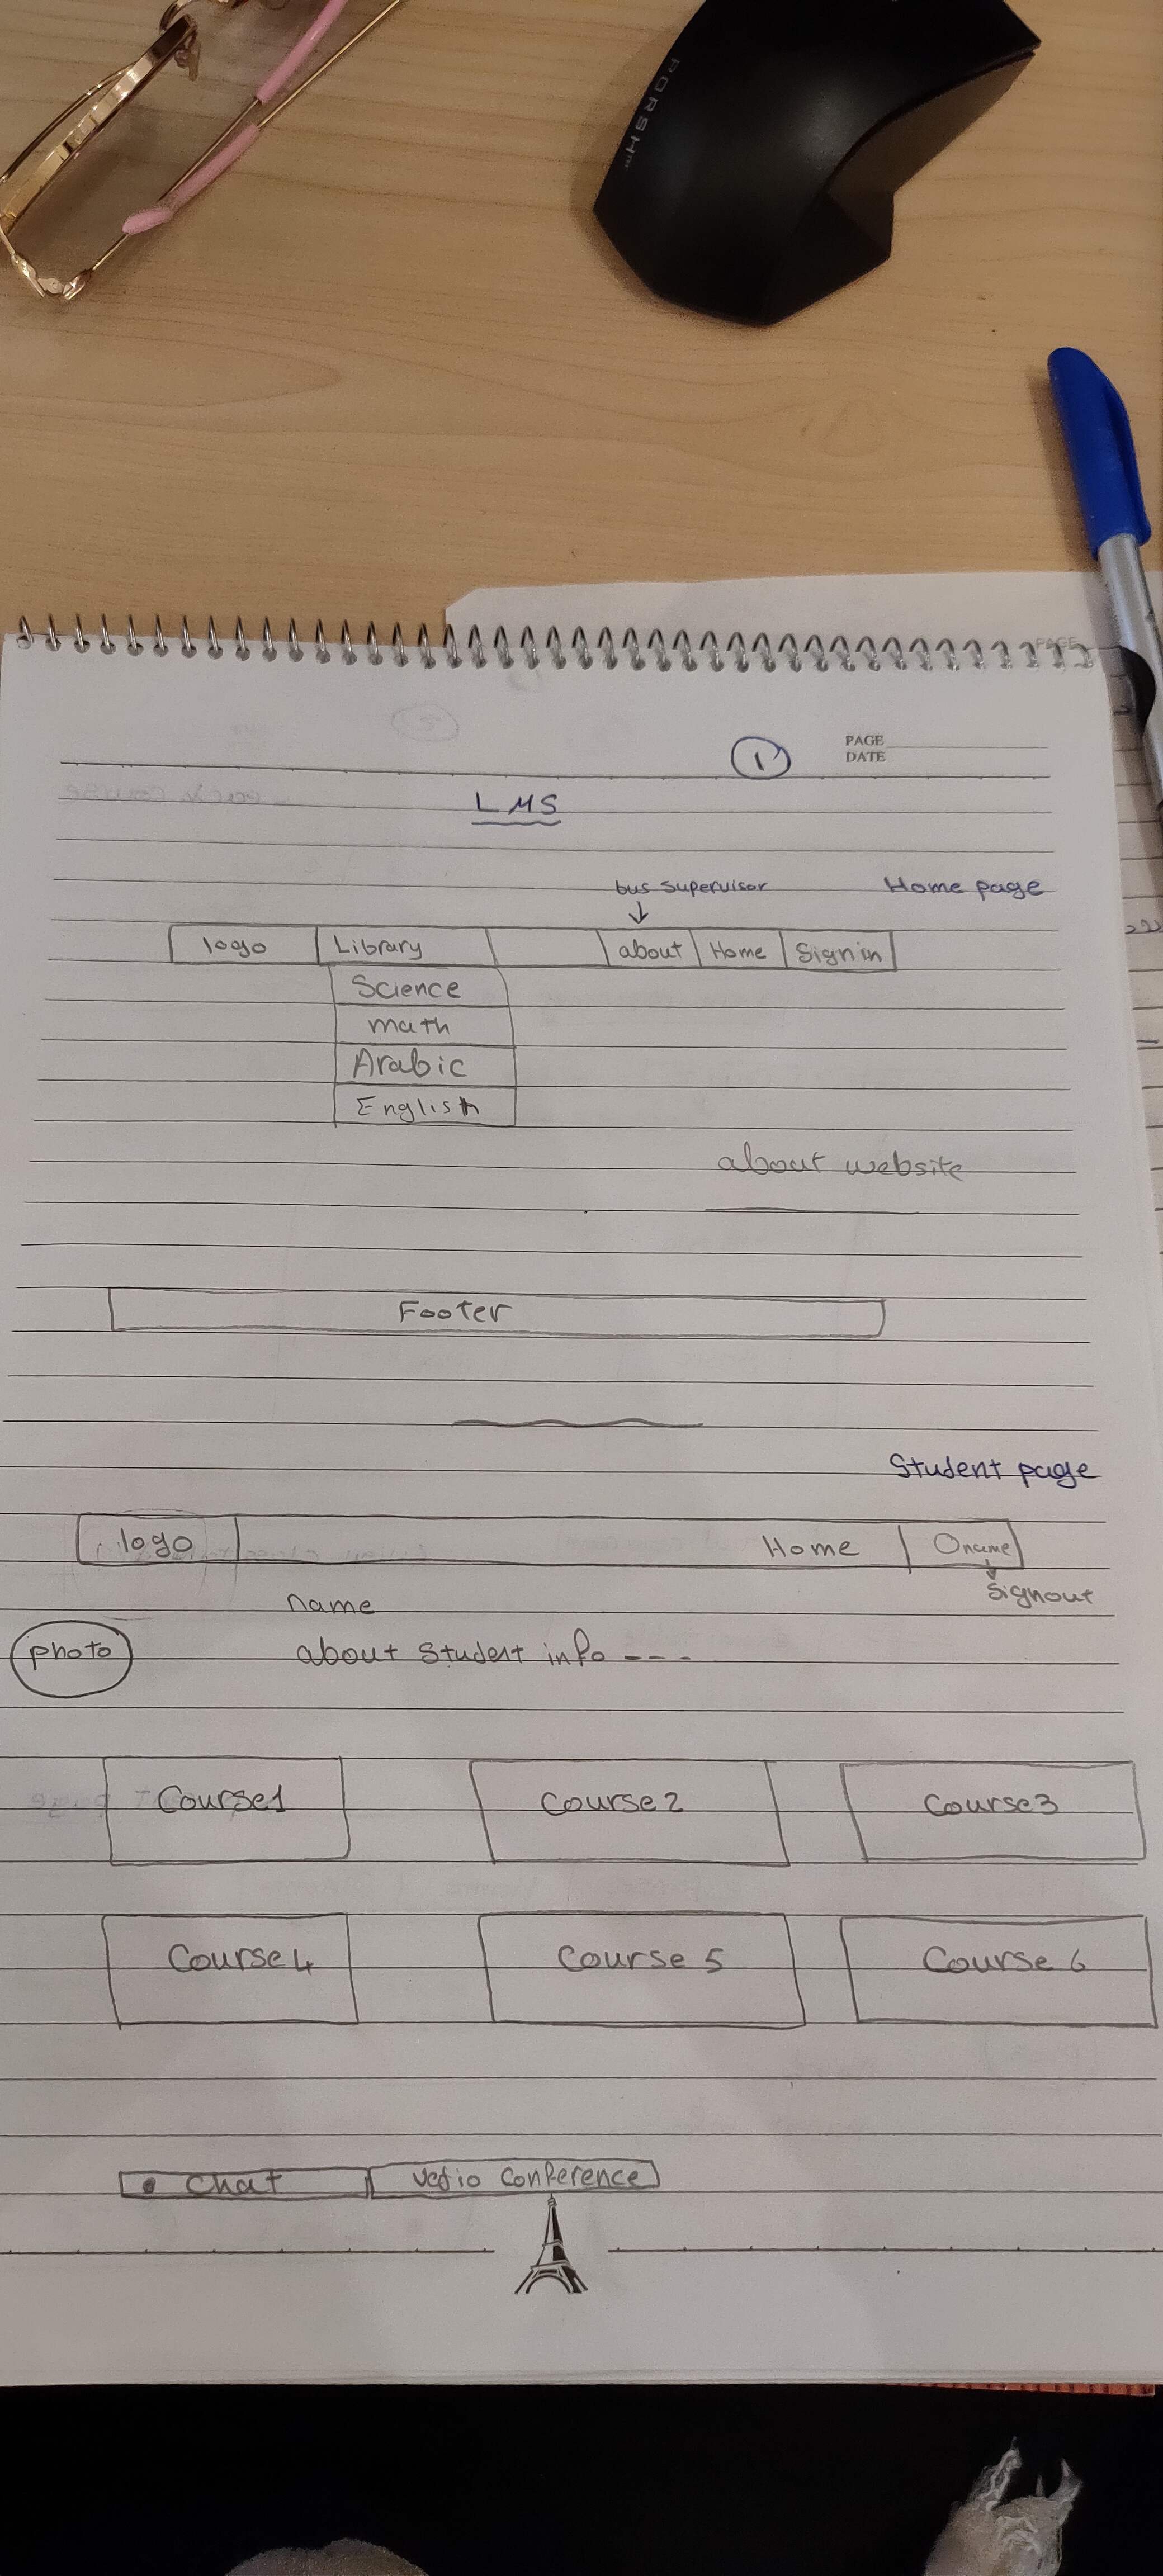 PORSH
PAGE
1
PAGE
DATE
LMS
bus supervisor
Home page
logo Library about Home Sign in
Science
math
Arabic
English
about website
Footer
Student page
logo Home Oname
Signout
name
photo about Student info ---
Course1 Course2 Course3
Course4 Course 5 Course 6
Chat vedio Conference